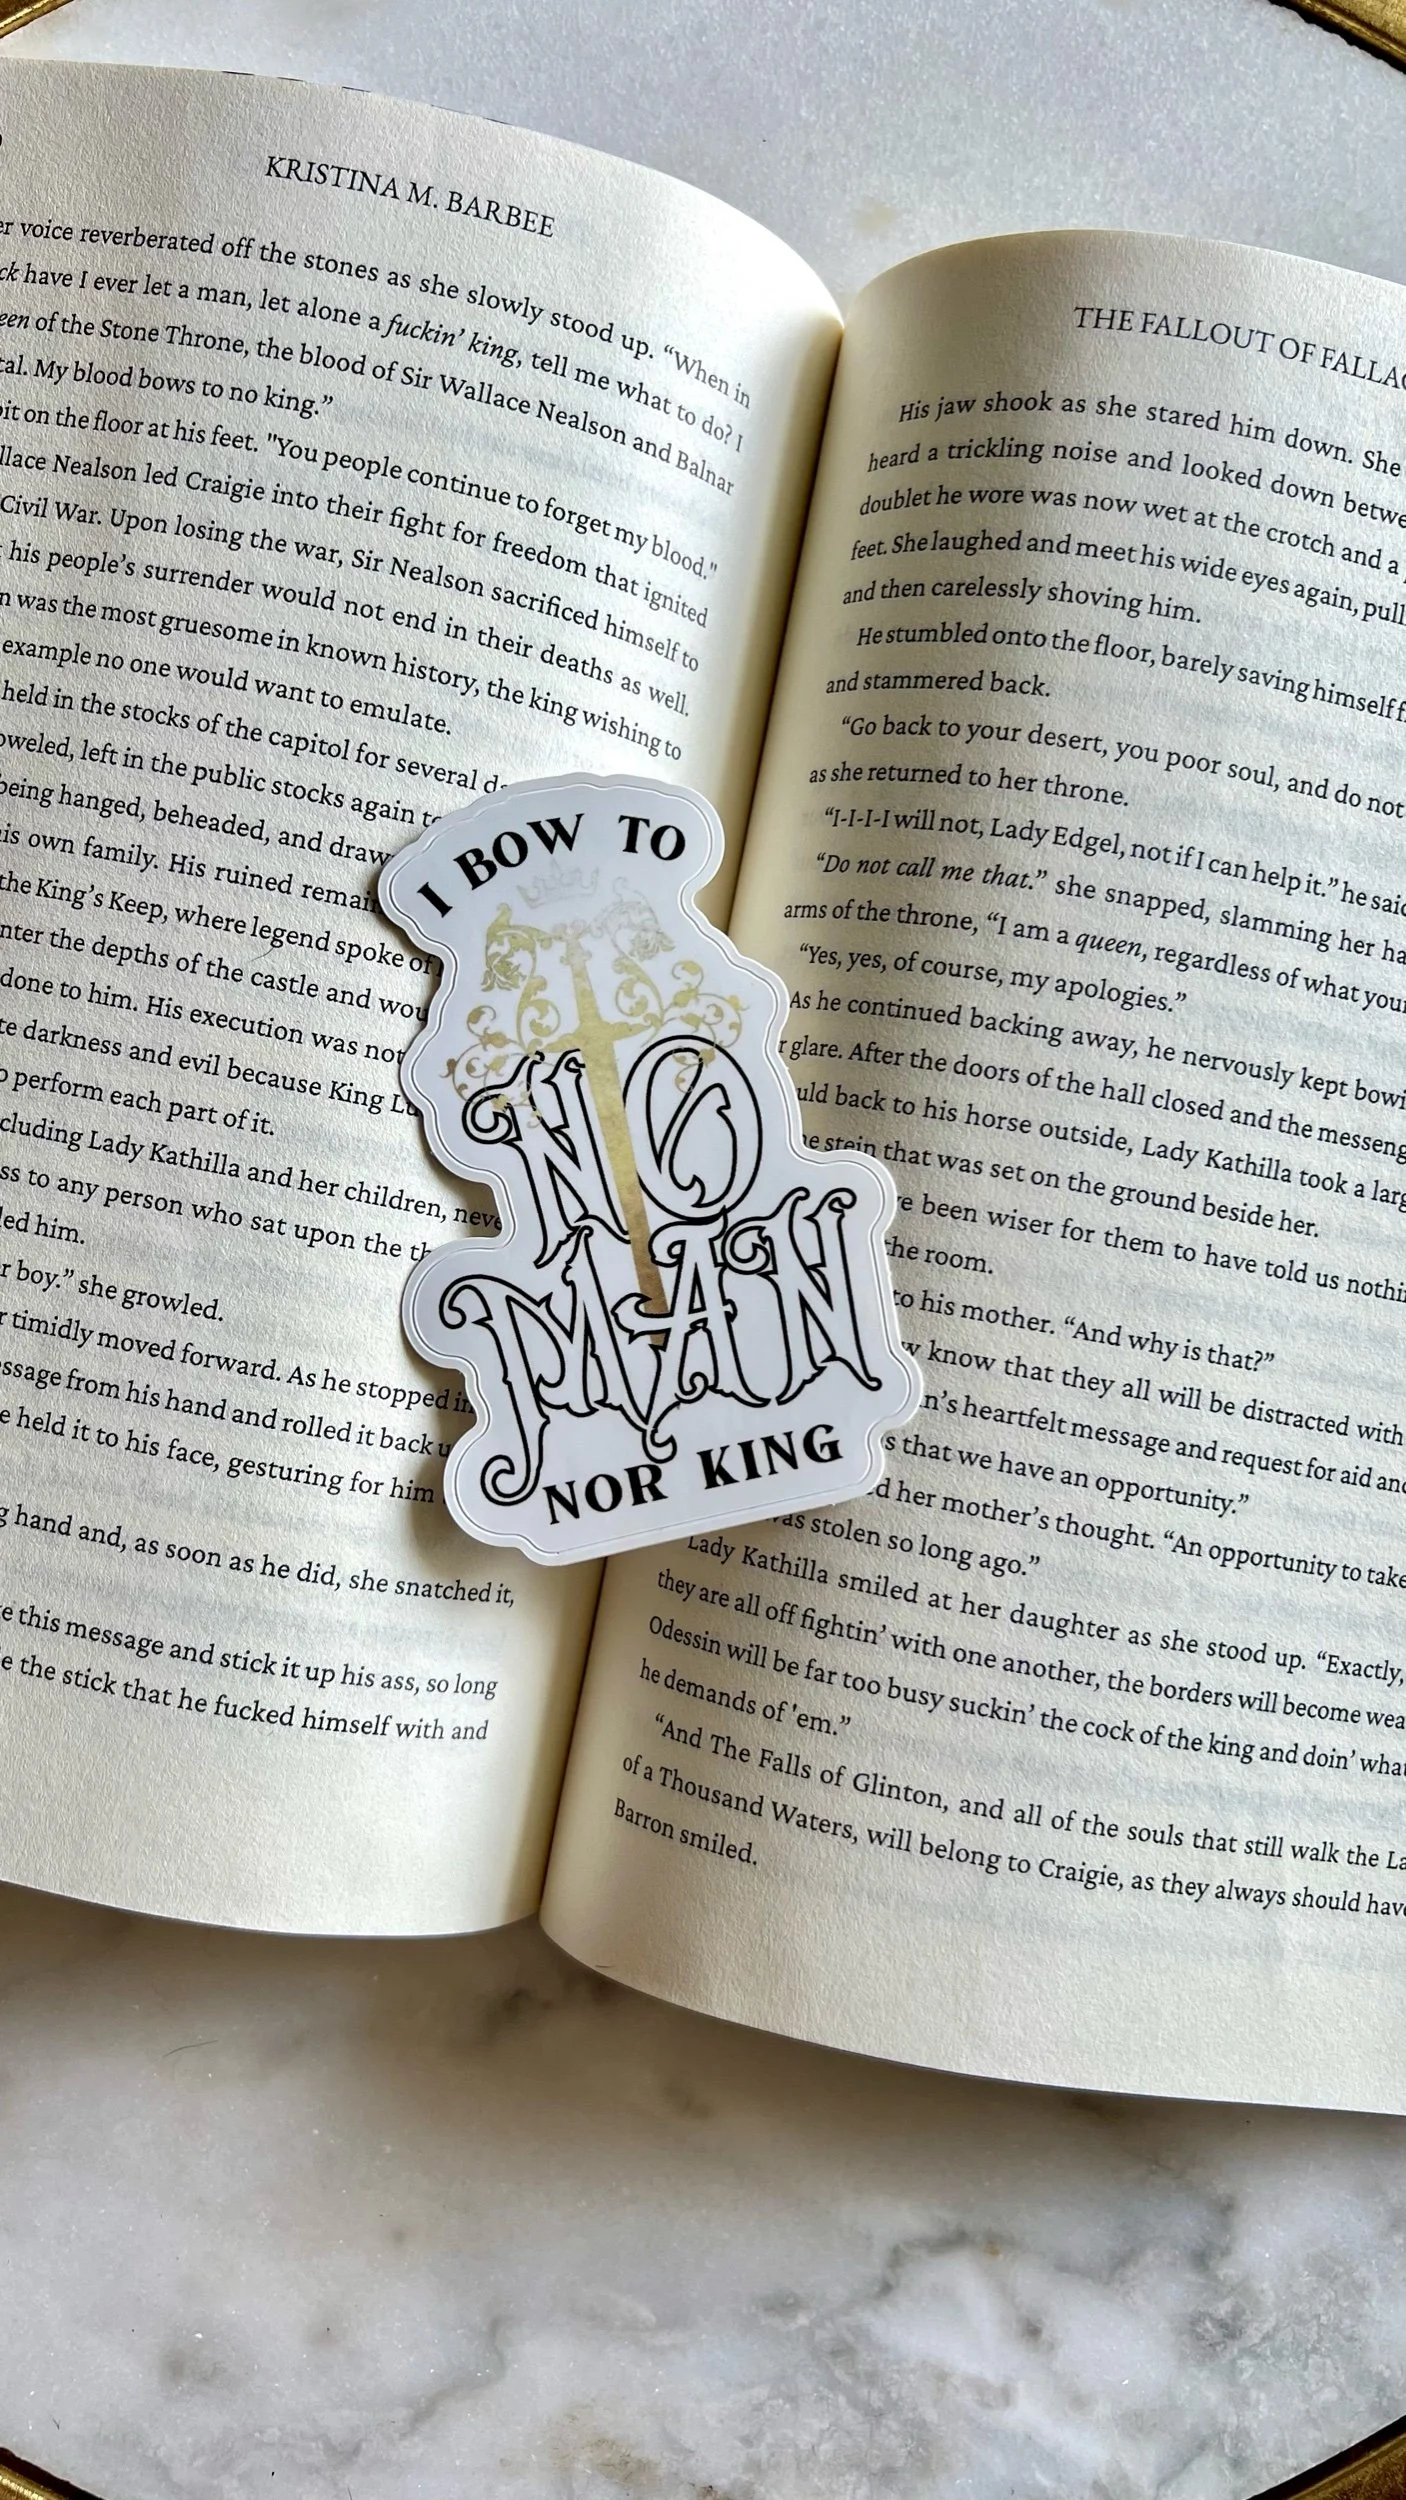 KRISTINA M. BARBEE
er voice reverberated off the stones as she slowly stood up. “When in
ck have I ever let a man, let alone a fuckin’ king, tell me what to do? I
een of the Stone Throne, the blood of Sir Wallace Nealson and Balnar
tal. My blood bows to no king.”
it on the floor at his feet. "You people continue to forget my blood."
llace Nealson led Craigie into their fight for freedom that ignited
Civil War. Upon losing the war, Sir Nealson sacrificed himself to
his people’s surrender would not end in their deaths as well.
n was the most gruesome in known history, the king wishing to
example no one would want to emulate.
held in the stocks of the capitol for several d
oweled, left in the public stocks again to
being hanged, beheaded, and draw
is own family. His ruined remai
the King’s Keep, where legend spoke of
nter the depths of the castle and wou
done to him. His execution was not
te darkness and evil because King Lu
o perform each part of it.
cluding Lady Kathilla and her children, neve
ss to any person who sat upon the th
led him.
r boy.” she growled.
r timidly moved forward. As he stopped in
ssage from his hand and rolled it back u
e held it to his face, gesturing for him
g hand and, as soon as he did, she snatched it,
e this message and stick it up his ass, so long
e the stick that he fucked himself with and
I BOW TO
NO
MAN
NOR KING
THE FALLOUT OF FALLAC
His jaw shook as she stared him down. She
heard a trickling noise and looked down betwe
doublet he wore was now wet at the crotch and a
feet. She laughed and meet his wide eyes again, pull
and then carelessly shoving him.
He stumbled onto the floor, barely saving himself f
and stammered back.
“Go back to your desert, you poor soul, and do not
as she returned to her throne.
“I-I-I-I will not, Lady Edgel, not if I can help it.” he said
“Do not call me that.” she snapped, slamming her ha
arms of the throne, “I am a queen, regardless of what your
“Yes, yes, of course, my apologies.”
As he continued backing away, he nervously kept bowi
r glare. After the doors of the hall closed and the messeng
uld back to his horse outside, Lady Kathilla took a larg
he stein that was set on the ground beside her.
e been wiser for them to have told us nothi
the room.
to his mother. “And why is that?”
w know that they all will be distracted with
n’s heartfelt message and request for aid and
s that we have an opportunity.”
d her mother’s thought. “An opportunity to take
was stolen so long ago.”
Lady Kathilla smiled at her daughter as she stood up. “Exactly,
they are all off fightin’ with one another, the borders will become wea
Odessin will be far too busy suckin’ the cock of the king and doin’ what
he demands of 'em.”
“And The Falls of Glinton, and all of the souls that still walk the La
of a Thousand Waters, will belong to Craigie, as they always should hav
Barron smiled.